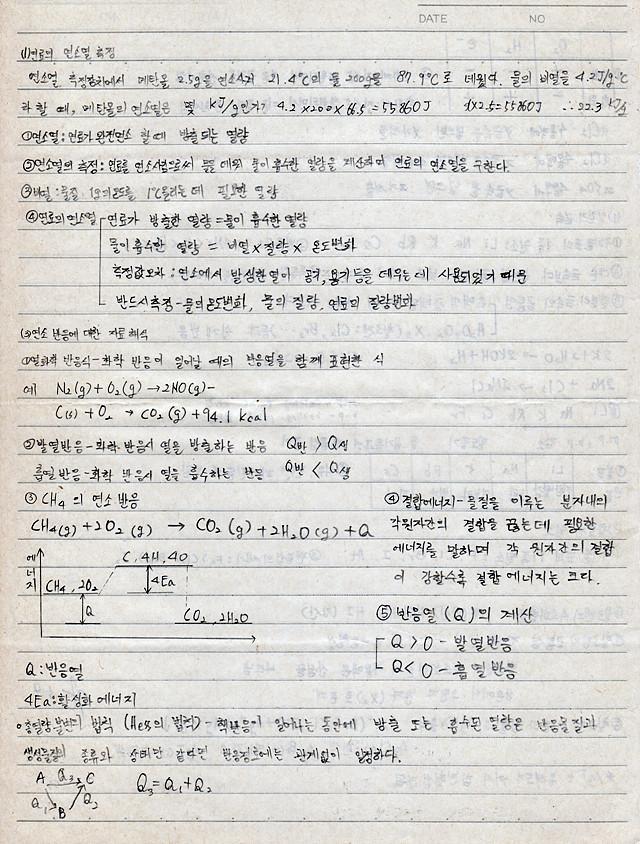 DATE NO
(1) 연료의 연소열 측정
연소열 측정장치에서 메탄올 2.5g을 연소시켜 21.4°C의 물 200g을 87.9°C로 데웠다. 물의 비열을 4.2J/g·°C
라 할 때, 메탄올의 연소열은 몇 kJ/g인가? 4.2×200×66.5=55860J 1x2.5=55860J ∴22.3 kJ/g
①연소열 : 연료가 완전연소 할 때 방출되는 열량
②연소열의 측정 : 연료를 연소시킴으로써 물을 데워 물이 흡수한 열량을 계산하여 연료의 연소열을 구한다.
③비열 : 물질 1g의 온도를 1°C올리는데 필요한 열량
④연료의 연소열 연료가 방출한 열량=물이 흡수한 열량
물이 흡수한 열량 = 비열×질량×온도변화
측정값오차 : 연소에서 발생한열이 공기, 용기등을 데우는데 사용되었기 때문
반드시측정-물의온도변화, 물의 질량, 연료의 질량변화
(2)연소 반응에 대한 자료 해석
①열화학 반응식-화학 반응이 일어날 때의 반응열을 함께 표현한 식
예 N₂(g)+O₂(g)→2NO(g)-
C(s)+O₂ → CO₂(g)+94.1 kcal
②발열반응-화학 반응시 열을 방출하는 반응 Q반 > Q생
흡열반응-화학 반응시 열을 흡수하는 반응 Q반 < Q생
③ CH₄의 연소 반응
CH₄(g)+2O₂(g) → CO₂(g)+2H₂O(g)+Q
에너지
C, 4H, 4O
CH₄, 2O₂
4Ea
Q
CO₂, 2H₂O
Q : 반응열
4Ea : 활성화에너지
④결합에너지-물질을 이루는 분자내의
각원자간의 결합을 끊는데 필요한
에너지를 말하며 각 원자간의 결합
이 강할수록 결합 에너지는 크다.
⑤ 반응열(Q)의 계산
Q>0-발열반응
Q<0-흡열반응
총열량불변의 법칙(Hess의 법칙)- 화학반응이 일어나는 동안에 방출 또는 흡수된 열량은 반응물질과
생성물질의 종류와 상태만 같다면 반응경로에는 관계없이 일정하다.
A Q₃ C
Q₁ B Q₂
Q₃=Q₁+Q₂